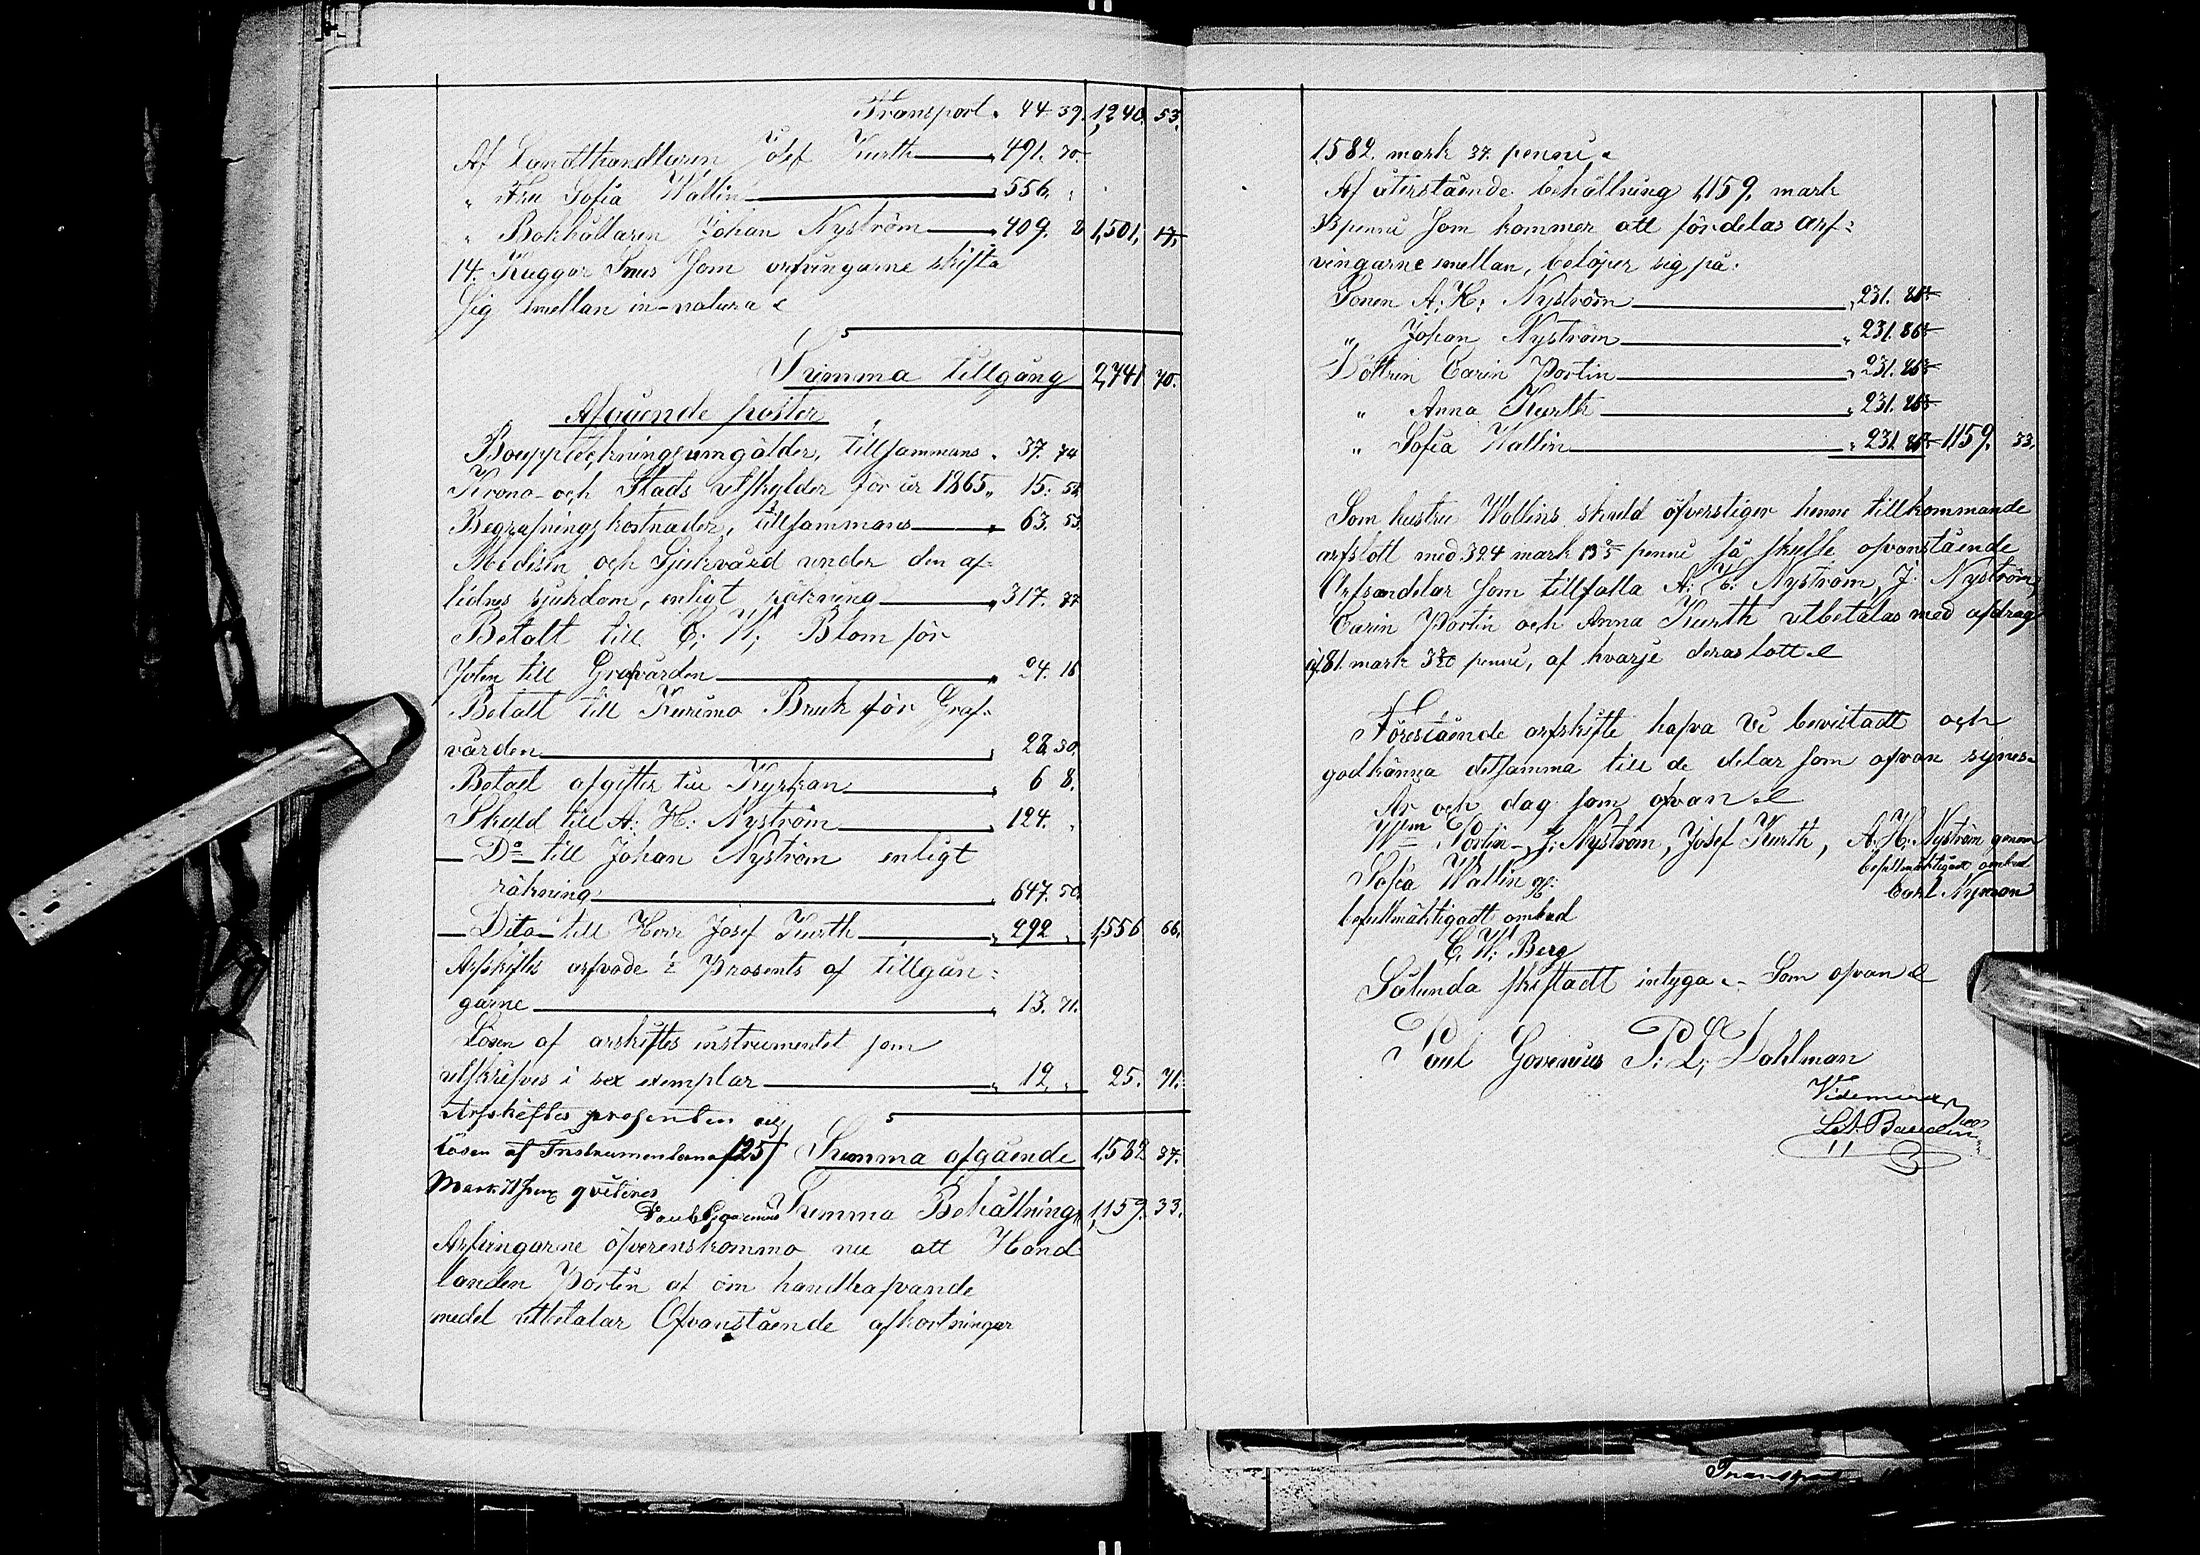 Transport „ 44 39. 1,240. 53.
Af Landthandlaren Josef Kurth „ 491. 70.
„ Fru Sofia Wallin „ 556. „
„ Bokhållaren Johan Nyström „ 409. 8 1,501. 17.
14. Kaggar Snus som arfvingarne skifta
sig emellan in-natura
Summa tillgång 2,741 70.
Afgående poster
Bouppteckningsumgälder, tillsammans „ 37. 74
Krono- och Stads utskylder för år 1865 „ 15. 52
Begrafningskostnader, tillsammans „ 63. 53
Medisin och Sjukvård under den af-
lidnes sjukdom, enligt räkning „ 317. 77
Betalt till C. W. Blom för
foten till Grafvården „ 24. 16
Betalt till Kurimo Bruk för Graf-
vården „ 28 50.
Betalt afgifter till Kyrkan „ 6 8.
Skuld till A. H. Nyström „ 124. „
Do till Johan Nyström enligt
räkning „ 647. 50
Dito till Herr Josef Kurth „ 292 „ 1,556 66.
Arfskiftes arfvode ½ Prosents af tillgån-
garne „ 13. 71.
Lösen af arskiftes instrumentet som
utskrifves i sex exemplar „ 12. „ 25. 71.
Arfskiftes prosenten och
lösen af Instrumenterna /25/ Summa afgående 1,582 37.
Mark 71 pen qvitteras
Paul Govenius Summa Behållning 1,159. 33.
Arfvingarne öfverenskommo nu att Hand-
landen Portin af om handhafvande
medel utbetalar Ofvanstående afkortningar
1,582. mark 37. penni
Af återstående behållning 1,159. mark
33 penni som kommer att fördelas arf-
vingarne emellan, belöper sig på:
Sonen A. H. Nyström „ 231. 86 3/5
„ Johan Nyström „ 231. 86 3/5
Dottren Carin Portin „ 231. 86 3/5
„ Anna Kurth „ 231. 86 3/5
„ Sofia Wallin „ 231. 86 3/5 1159. 33.
Som hustru Wallins skuld öfverstiger henne tillkommande
arfslott med 324 mark 13 2/5 penni så skulle ofvanstående
Arfsandelar som tillfalla A. H. Nyström, J. Nyström,
Carin Portin och Anna Kurth utbetalas med afdrag
af 81 mark 3 7/20 penni, af hvarje deras lott
Förestående arfskifte hafva Vi bevistadt och
godkänna detsamma till de delar som ofvan synes.
År och dag som ofvan
Wm Portin J. Nyström, Josef Kurth, A. H. Nyström genom
befullmäktigade ombud
Carl Nyman
Sofia Wallin gm
befullmäktigadt ombud
C. W. Berg
Sålunda skiftadt intyga. Som ofvan
Paul Govenius P. L. Dahlman
Videmeras
Transport